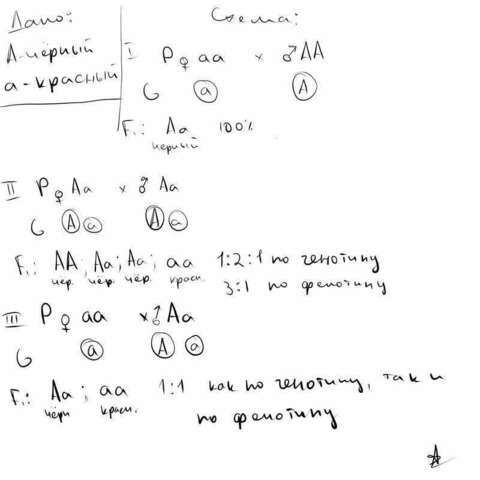 Дано:
А-чёрный
а-красный
Схема:
I P ♀ аа × ♂ АА
G а А
F₁: Аа 100%
черный
II P ♀ Аа × ♂ Аа
G А а А а
F₁: АА; Аа; Аа; аа 1:2:1 по генотипу
чер. чёр. чёр. красн. 3:1 по фенотипу
III P ♀ аа × ♂ Аа
G а А а
F₁: Аа ; аа 1:1 как по генотипу, так и
чёрн красн. по фенотипу